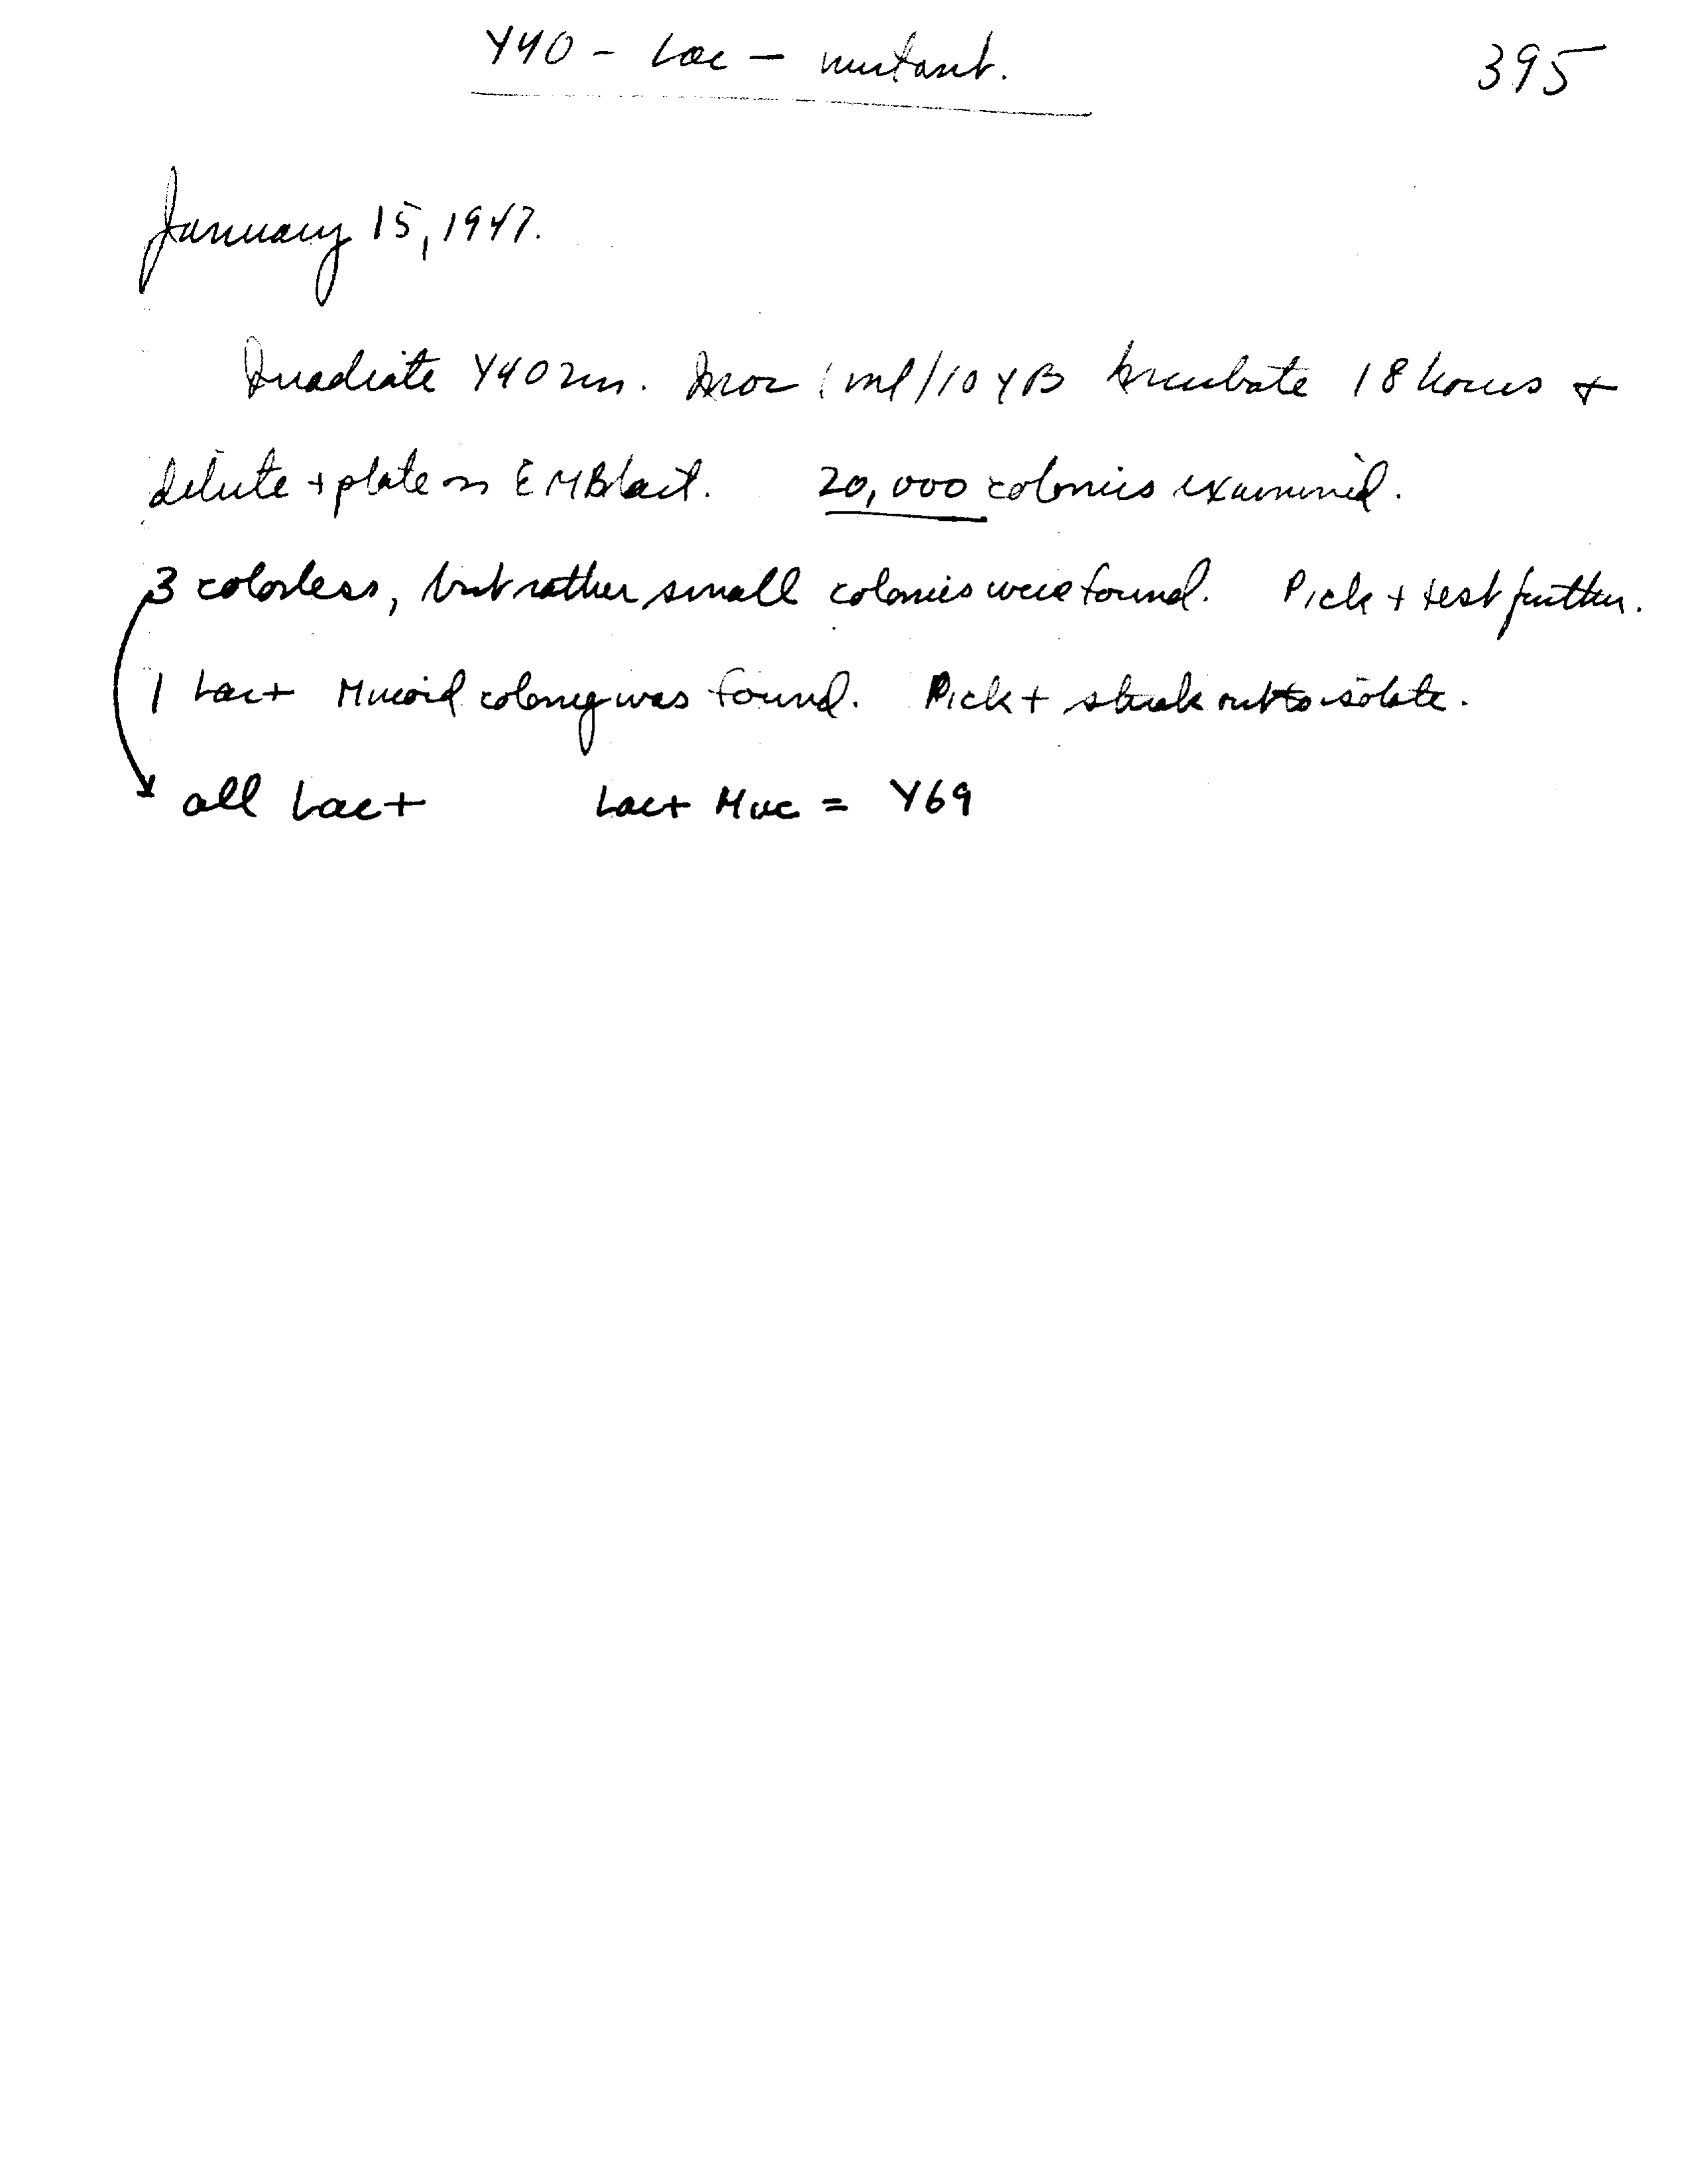 Y40 - Lac - mutant.
395
January 15, 1947.
Irradiate Y40 . Inoc 1 ml/10 YB Incubate 18 hours +
dilute + plate on EMB lact. 20,000 colonies examined.
3 colorless, but rather small colonies were found. Pick + test further.
1 Lac+ Mucoid colony was found. Pick + streak out to isolate.
all Lac+ Lac+ Muc = Y69